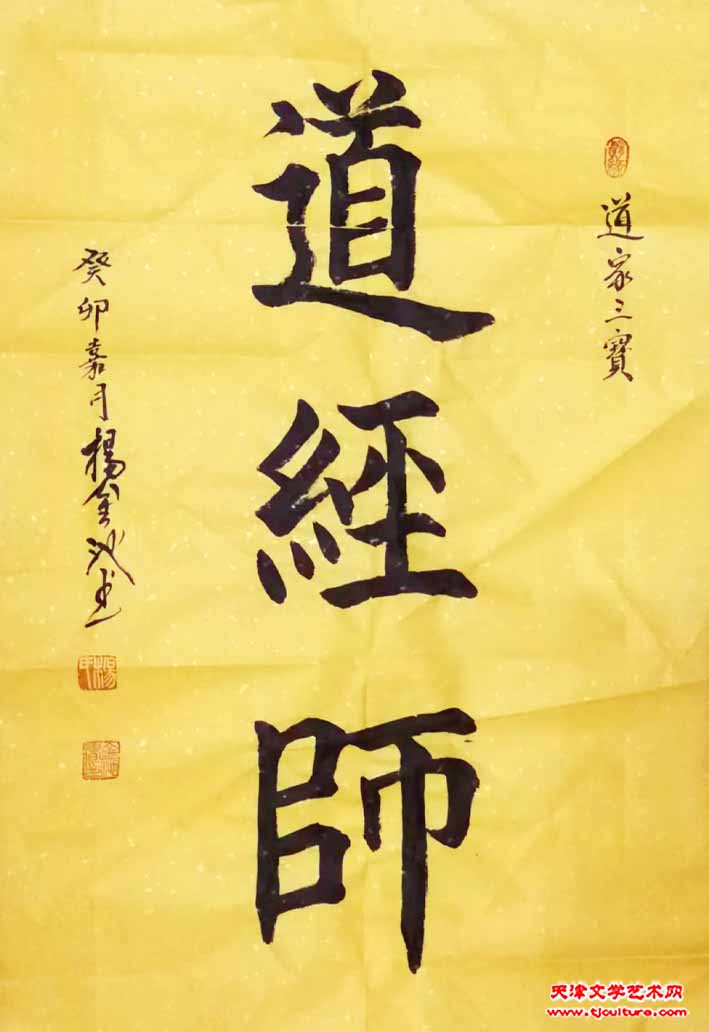 道家三寶
道經師
癸卯嘉月楊金池書
天津文学艺术网
www.tjculture.com